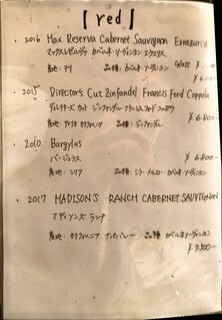 【red】
・2016 Max Reserva Cabernet Sauvignon Errazuriz
マックスレゼルヴァ カベルネ・ソーヴィニヨン エラスリス
産地:チリ 品種:カベルネ・ソーヴィニヨン Glass ¥
・2015 Director's Cut Zinfandel Francis Ford Coppola
ディレクターズ カット ジンファンデル フランシス フォード コッポラ
産地:アメリカ カリフォルニア 品種:ジンファンデル ¥6.800-
・2010 Bargylus
バージュラス ¥
産地:シリア 品種:シラー・メルロー・カベルネ・ソーヴィニヨン
・2017 MADISON'S RANCH CABERNET SAUVIGNON
マディソンズ ランチ
産地:カリフォルニア ナパバレー 品種:カベルネ・ソーヴィニヨン
¥7.500-